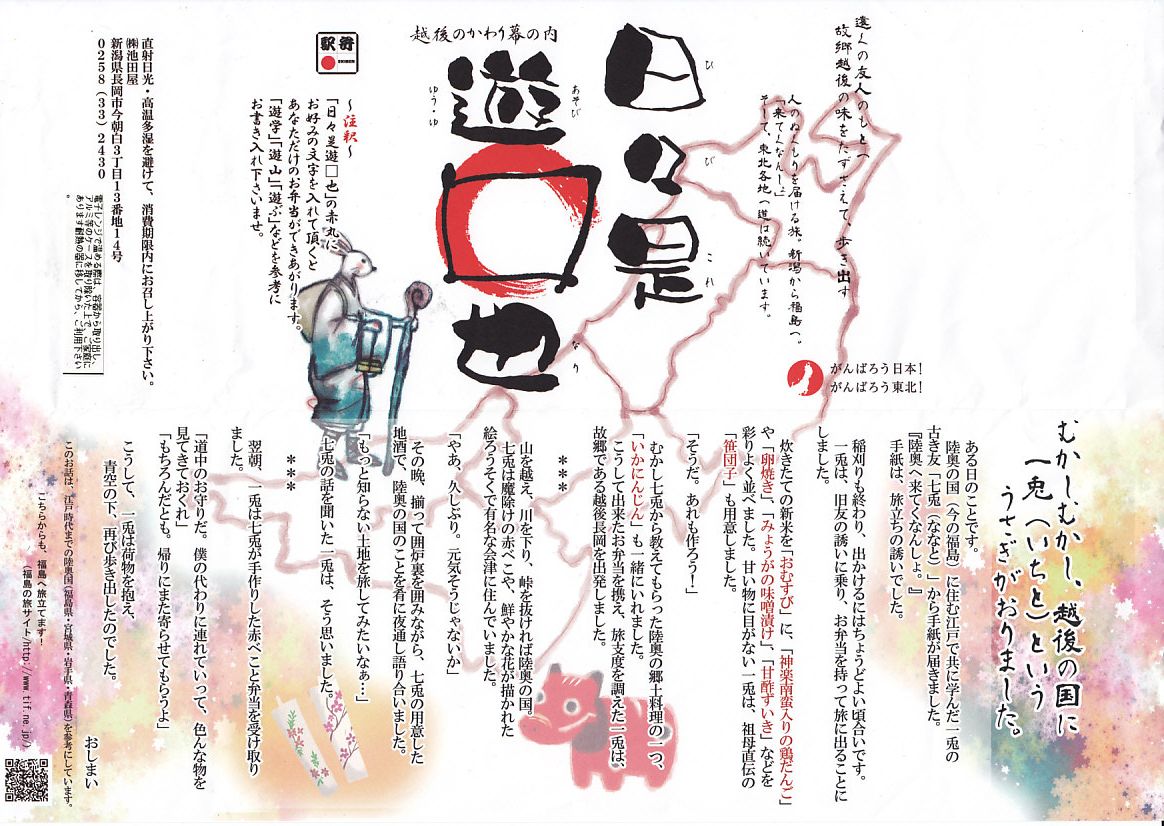 遠くの友人のもとへ
故郷越後の味をたずさえて、歩き出す
人のぬくもりを届ける旅。新潟から福島へ。
「来てくなんしょ」
そして、東北各地へ道は続いています。
日々是
ひ
び
これ
遊□也
あそび
ゆう・ゆ
なり
越後のかわり幕の内
駅弁
EKIBEN
～注釈～
「日々是遊□也」の赤丸に
お好みの文字を入れて頂くと
あなただけのお弁当ができあがります。
「遊学」「遊山」「遊ぶ」などを参考に
お書き入れ下さいませ。
直射日光・高温多湿を避けて、消費期限内にお召し上がり下さい。
㈱池田屋
新潟県長岡市今朝白3丁目13番地14号
0258(33)2430
電子レンジで温める際は、容器から取り出し、
アルミ等のケースを取り除いた上で、ご家庭に
あります耐熱の器に移してから、ご利用下さい。
がんばろう日本!
がんばろう東北!
むかしむかし、越後の国に
一兎（いちと）という
うさぎがおりました。
ある日のことです。
陸奥の国（今の福島）に住む江戸で共に学んだ一兎の
古き友「七兎（ななと）」から手紙が届きました。
『陸奥へ来てくなんしょ。』
手紙は、旅立ちの誘いでした。
稲刈りも終わり、出かけるにはちょうどよい頃合いです。
一兎は、旧友の誘いに乗り、お弁当を持って旅に出ることに
しました。
炊きたての新米を「おむすび」に、「神楽南蛮入りの鶏だんご」
や「卵焼き」、「みょうがの味噌漬け」、「甘酢ずいき」などを
彩りよく並べました。甘い物に目がない一兎は、祖母直伝の
「笹団子」も用意しました。
「そうだ。あれも作ろう!」
むかし七兎から教えてもらった陸奥の郷土料理の一つ、
「いかにんじん」も一緒にいれました。
こうして出来たお弁当を携え、旅支度を調えた一兎は、
故郷である越後長岡を出発しました。
***
山を越え、川を下り、峠を抜ければ陸奥の国。
七兎は魔除けの赤べこや、鮮やかな花が描かれた
絵ろうそくで有名な会津に住んでいました。
「やあ、久しぶり。元気そうじゃないか」
その晩、揃って囲炉裏を囲みながら、七兎の用意した
地酒で、陸奥の国のことを肴に夜通し語り合いました。
「もっと知らない土地を旅してみたいなぁ…」
七兎の話を聞いた一兎は、そう思いました。
***
翌朝、一兎は七兎が手作りした赤べこと弁当を受け取り
ました。
「道中のお守りだ。僕の代わりに連れていって、色んな物を
見てきておくれ」
「もちろんだとも。帰りにまた寄らせてもらうよ」
こうして、一兎は荷物を抱え、
青空の下、再び歩き出したのでした。
おしまい
このお話は、江戸時代までの陸奥国(福島県・宮城県・岩手県・青森県)を参考にしています。
こちらからも、福島へ旅立てます!
(福島の旅サイト/http://www.tif.ne.jp/)